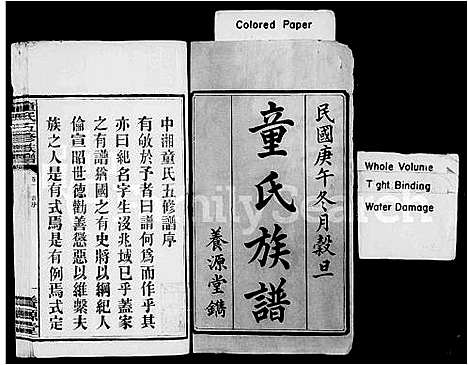 Colored Paper
民國庚午冬月穀旦
童氏族譜
養源堂鐫
Whole Volume
Tight Binding
Water Damage
中湘童氏五修譜序
有敂於予者曰譜何為而作乎其
亦曰紀名字生沒兆域已乎蓋家
之有譜猶國之有史將以綱紀人
倫宣昭世德勸善懲惡以維繫夫
族之人是有式焉是有例焉式定
FamilySearch